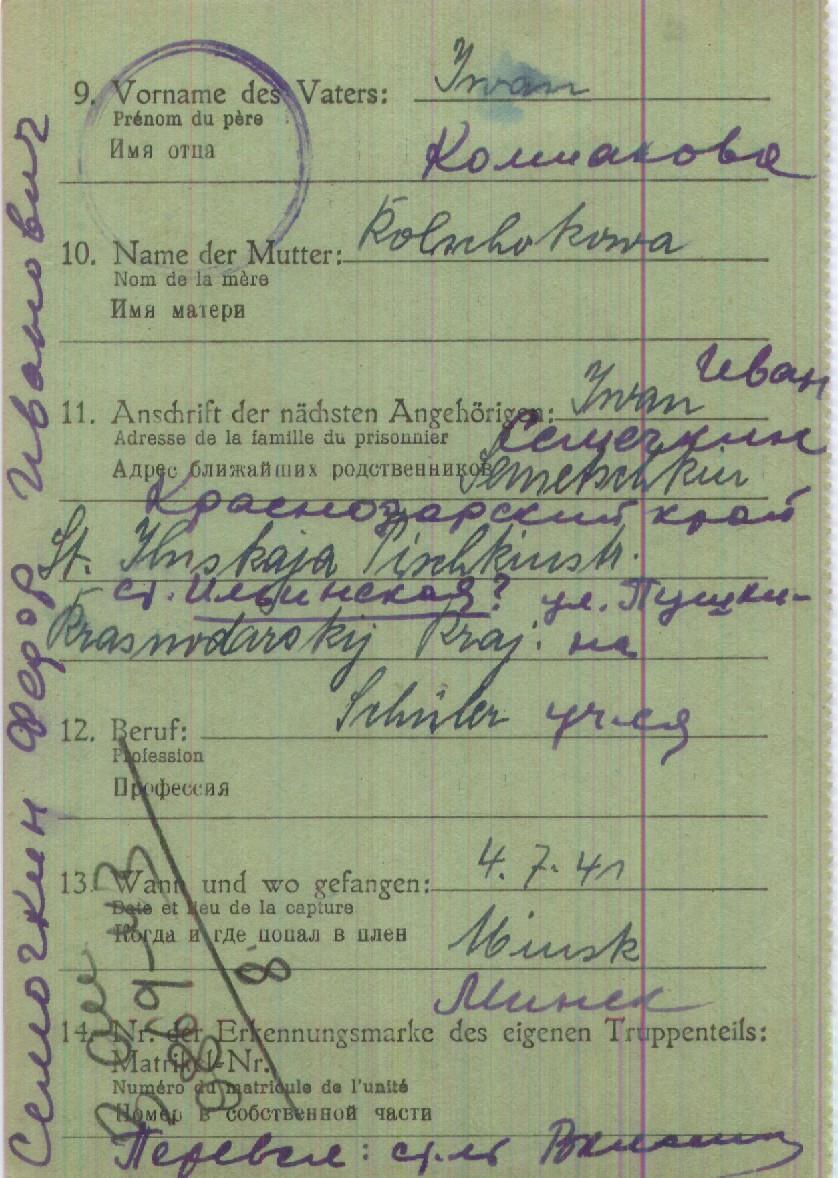 9. Vorname des Vaters: Iwan
Prénom du père
Имя отца
Колшакова
10. Name der Mutter: Kolschokowa
Nom de la mère
Имя матери
Иван
11. Anschrift der nächsten Angehörigen: Iwan
Adresse de la famille du prisonnier
Семечкин
Адрес ближайших родственников Semetschkin
Краснодарский край
St. Ilnskaja Pischkinstr.
ст. Ильинская? ул. Пушки-
Krasnodarskij Kraj. на
12. Beruf: Schüler уч-ся
Profession
Профессия
13. Wann und wo gefangen: 4. 7. 41
Date et lieu de la capture
Когда и где попал в плен Minsk
Минск
14. Nr. der Erkennungsmarke des eigenen Truppenteils:
Matrikel-Nr.
Numéro du matricule de l'unité
Номер в собственной части
Перевел: ст. л-т
Семочкин Федор Иванович